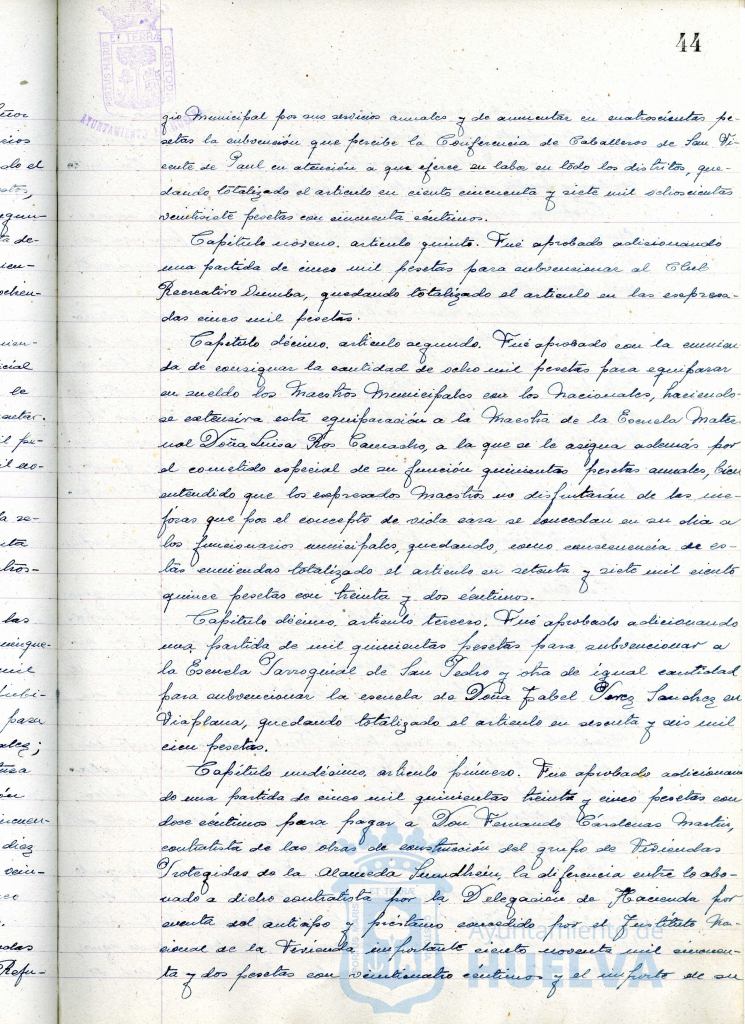 44
PORTUS MARIS ET TERRÆ CUSTODIA
AYUNTAMIENTO
gio Municipal por sus servicios anuales y de aumentar en cuatrocientas pe-
setas la subvención que percibe la Conferencia de Caballeros de San Vi-
cente de Paul en atención a que ejerce su labor en todo los distritos, que-
dando totalizado el articulo en ciento cincuenta y siete mil ochocientas
veintisiete pesetas con cincuenta céntimos.
Capítulo noveno. articulo quinto. Fué aprobado adicionando
una partida de cinco mil pesetas para subvencionar al Club
Recreativo Onuba, quedando totalizado el articulo en las expresa-
das cinco mil pesetas.
Capítulo décimo. articulo segundo. Fué aprobado con la enmien
da de consignar la cantidad de ocho mil pesetas para equiparar
en sueldo los Maestros Municipales con los Nacionales, haciendo-
se extensiva esta equiparación a la Maestra de la Escuela Mater
nal Doña Luisa Ros Camacho, a la que se le asigna además por
el cometido especial de su función quinientas pesetas anuales, bien
entendido que los expresados Maestros no disfrutarán de las me-
joras que por el concepto de vida cara se concedan en su dia a
los funcionarios municipales, quedando, como consecuencia de es-
tas enmiendas totalizado el articulo en setenta y siete mil ciento
quince pesetas con treinta y dos céntimos.
Capítulo décimo, articulo tercero. Fué aprobado adicionando
una partida de mil quinientas pesetas para subvencionar a
la Escuela Parroquial de San Pedro y otra de igual cantidad
para subvencionar la escuela de Doña Isabel Perez Sanchez en
Viaplana, quedando totalizado el articulo en sesenta y seis mil
cien pesetas.
Capítulo undécimo, articulo primero. Fue aprobado adicionan
do una partida de cinco mil quinientas treinta y cinco pesetas con
doce céntimos para pagar a Don Fernando Cárdenas Martin,
contratista de las obras de construcción del grupo de Viviendas
Protegidas de la Alameda Sundheim, la diferencia entre lo abo-
nado a dicho contratista por la Delegación de Hacienda por
cuenta del anticipo y préstamo concedido por el Instituto Na-
cional de la Vivienda importante ciento noventa mil cincuen-
ta y dos pesetas con veinticuatro céntimos y el importe de su
Ayuntamiento de
HUELVA